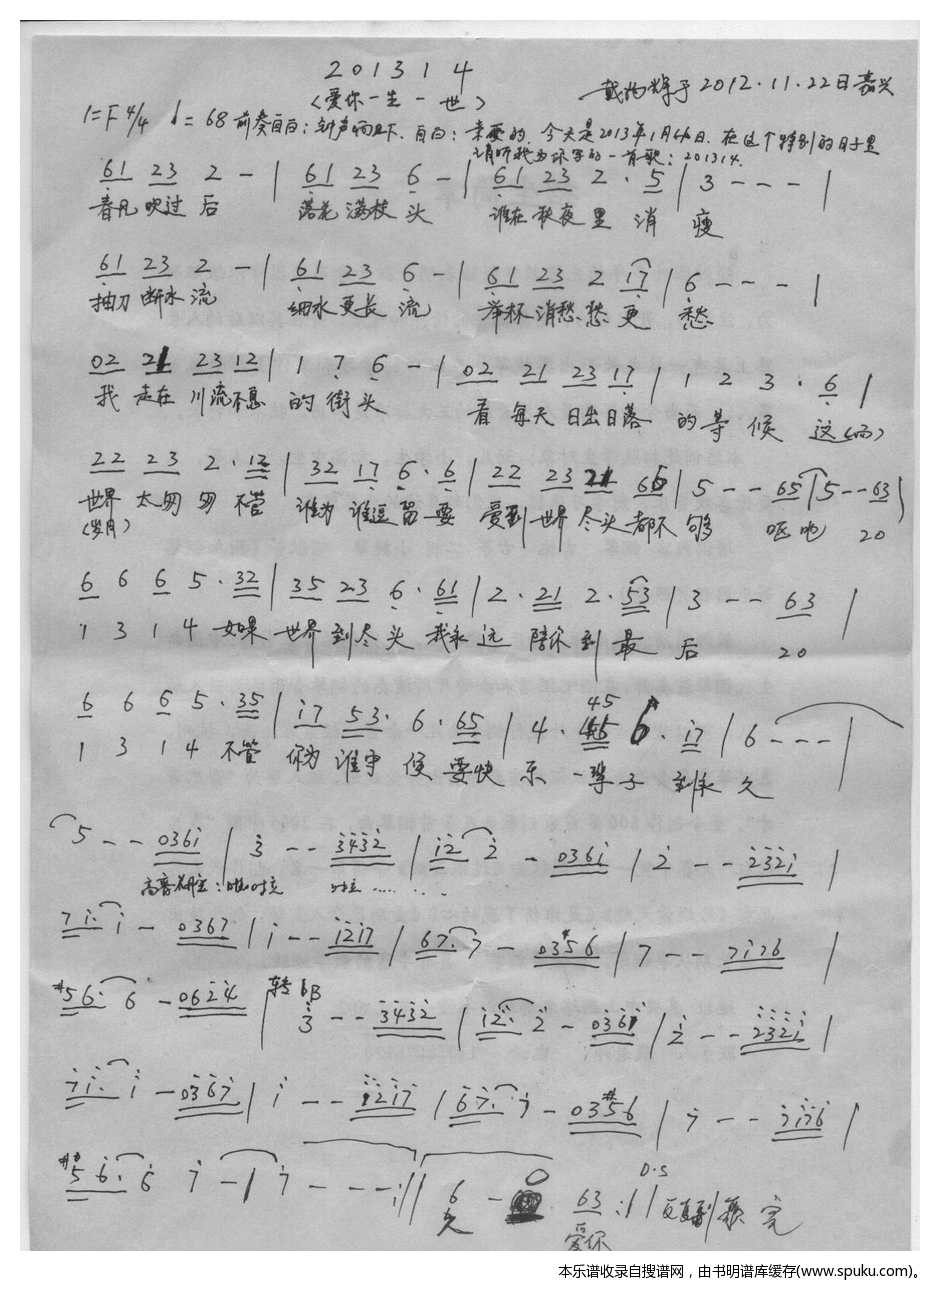 201314
(爱你一生一世)
于2012.11.22日嘉兴
1=F 4/4 ♩=68 前奏自白:钟声响12下. 自白:亲爱的,今天是2013年1月4日.在这个特别的日子里
请听我为你写的一首歌:201314.
61 23 2 - | 61 23 6 - | 61 23 2 · 5 | 3 - - - |
春风吹过后 落花满枝头 谁在秋夜里 消瘦
61 23 2 - | 61 23 6 - | 61 23 2 17 | 6 - - - |
抽刀断水流 细水更长流 举杯消愁愁更愁
02 21 23 12 | 1 7 6 - | 02 21 23 17 | 1 2 3 · 6 |
我 走在 川流不息 的街头 看 每天 日出日落 的等候 这(而)
22 23 2 · 12 | 32 17 6 · 6 | 22 23 21 66 | 5 - - 65 | 5 - - 63 |
世界 太匆匆 不管 谁为 谁逗留 要 爱到 世界 尽头 都不够 呕吔 20
(岁月)
6 6 6 5 · 32 | 35 23 6 · 61 | 2 · 21 2 · 53 | 3 - - 63 |
1 3 1 4 如果 世界到尽头 我永远 陪你到最后 20
6 6 6 5 · 35 | i7 53 · 6 · 65 | 4 · 45 6 · i7 | 6 - - - |
45
1 3 1 4 不管 你为 谁守候 要快乐 一辈子 到永久
5 - - 036i | 3 - - 3432 | i2 2 - 036i | 2 - - 232i |
高音
7i · i - 0367 | i - - i2i7 | 67 · 7 - 03#56 | 7 - - 7i76 |
#56 · 6 - 0624 | 转bB 3 - - 3432 | i2 · 2 - 036i | 2 - - 232i |
7i · i - 0367 | i - - i2i7 | 67 · 7 - 03#56 | 7 - - 7i76 |
#56 · 6 7 - | 7 - - - :|| 6 - 0 63 :|| D.S 反复到预完
久 爱你
本乐谱收录自搜谱网，由书明谱库缓存(www.spuku.com)。